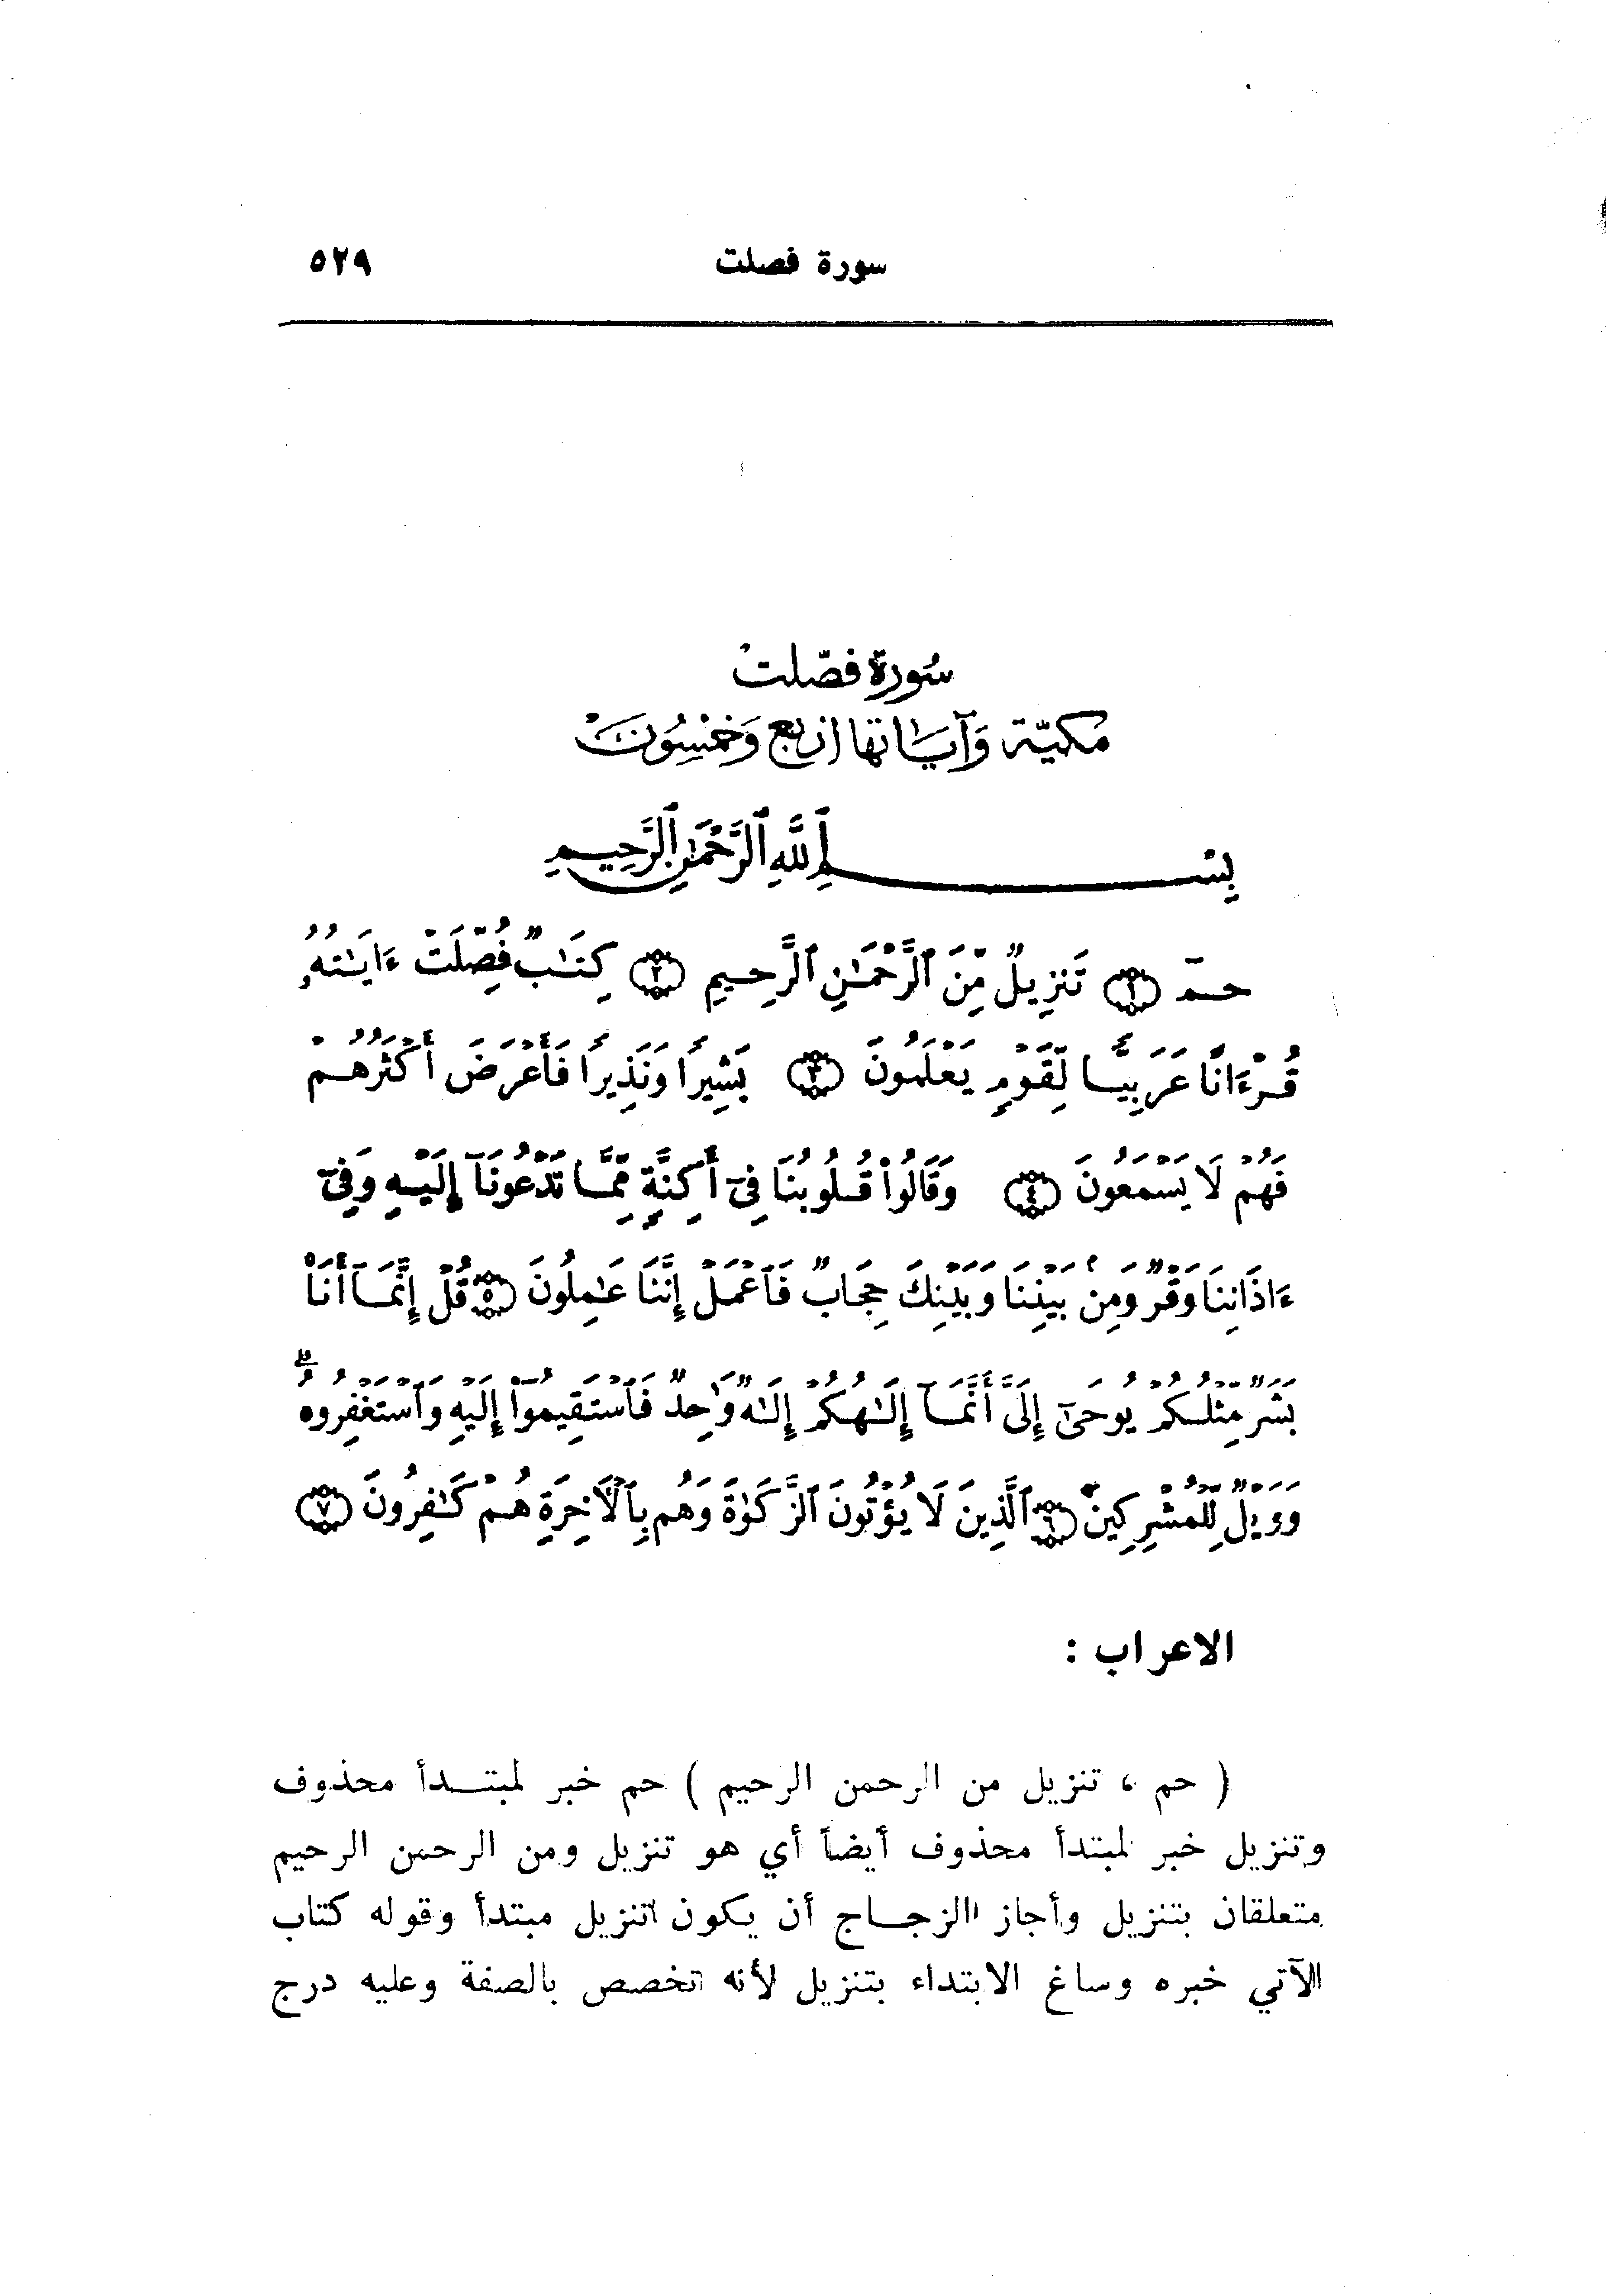 سورة فصلت ٥٢٩
سُورة فصّلتْ
مَكيّة وَآيَاتها ارْبع وَخمسُونَ
بِسْمِ ٱللَّهِ ٱلرَّحْمَٰنِ ٱلرَّحِيمِ
حـمٓ ﴿١﴾ تَنزِيلٌ مِّنَ ٱلرَّحْمَٰنِ ٱلرَّحِيمِ ﴿٢﴾ كِتَٰبٌ فُصِّلَتْ ءَايَٰتُهُۥ
قُرْءَانًا عَرَبِيًّا لِّقَوْمٍ يَعْلَمُونَ ﴿٣﴾ بَشِيرًا وَنَذِيرًا فَأَعْرَضَ أَكْثَرُهُمْ
فَهُمْ لَا يَسْمَعُونَ ﴿٤﴾ وَقَالُوا۟ قُلُوبُنَا فِىٓ أَكِنَّةٍ مِّمَّا تَدْعُونَآ إِلَيْهِ وَفِىٓ
ءَاذَانِنَا وَقْرٌ وَمِنۢ بَيْنِنَا وَبَيْنِكَ حِجَابٌ فَٱعْمَلْ إِنَّنَا عَٰمِلُونَ ﴿٥﴾ قُلْ إِنَّمَآ أَنَا۠
بَشَرٌ مِّثْلُكُمْ يُوحَىٰٓ إِلَىَّ أَنَّمَآ إِلَٰهُكُمْ إِلَٰهٌ وَٰحِدٌ فَٱسْتَقِيمُوٓا۟ إِلَيْهِ وَٱسْتَغْفِرُوهُ ۗ
وَوَيْلٌ لِّلْمُشْرِكِينَ ﴿٦﴾ ٱلَّذِينَ لَا يُؤْتُونَ ٱلزَّكَوٰةَ وَهُم بِٱلْأَخِرَةِ هُمْ كَٰفِرُونَ ﴿٧﴾
الاعراب :
( حم ، تنزيل من الرحمن الرحيم ) حم خبر لمبتــدأ محذوف
وتنزيل خبر لمبتدأ محذوف أيضاً أي هو تنزيل ومن الرحمن الرحيم
متعلقان بتنزيل وأجاز الزجــاج أن يكون تنزيل مبتدأ وقوله كتاب
الآتي خبره وساغ الابتداء بتنزيل لأنه تخصص بالصفة وعليه درج